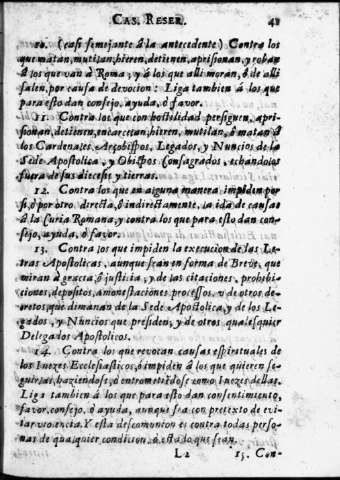 CAS. RESER. 41
10. (casi semejante â la antecedente) Contra los
que matan, mutilan, hieren, detienen, aprisionan, y roban
â los que van â Roma, y â los que alli moran, ô de alli
salen, por causa de devocion: Liga tambien â los que
para esto dan consejo, ayuda, ô favor.
11. Contra los que con hostilidad persiguen, apri-
sionan, detienen, encarcelan, hieren, mutilan, ô matan â
los Cardenales, Arçobispos, Legados, y Nuncios de la
Sede Apostolica, y Obispos Consagrados, echandolos
fuera de sus diocesis y tierras.
12. Contra los que en alguna manera impiden por
sì, ô por otro, directa, ô indirectamente, la ida de causas
â la Curia Romana; y contra los que para esto dan con-
sejo, ayuda, ô favor.
13. Contra los que impiden la execucion de las Le-
tras Apostolicas, aunque sean en forma de Breve, que
miran â gracia, ô justicia, y de las citaciones, prohibi-
ciones, depositos, amonestaciones processos, y de otros de-
cretos, que dimanan de la Sede Apostolica, y de los Le-
gados, y Nuncios que presiden, y de otros qualesquier
Delegados Apostolicos.
14. Contra los que revocan causas espirituales de
los Iuezes Ecclesiasticos, ô impiden â los que quieren se-
guirlas, haziendose, ô entrometiêdose como Iuezes dellas.
Liga tambien â los que para esto dan consentimiento,
favor, consejo, ô ayuda, aunque sea con pretexto de evi-
tar violencia. Y esta descomunion es contra todas perso-
nas de qualquier condicion, ô estado que sean.
L2 15. Con-